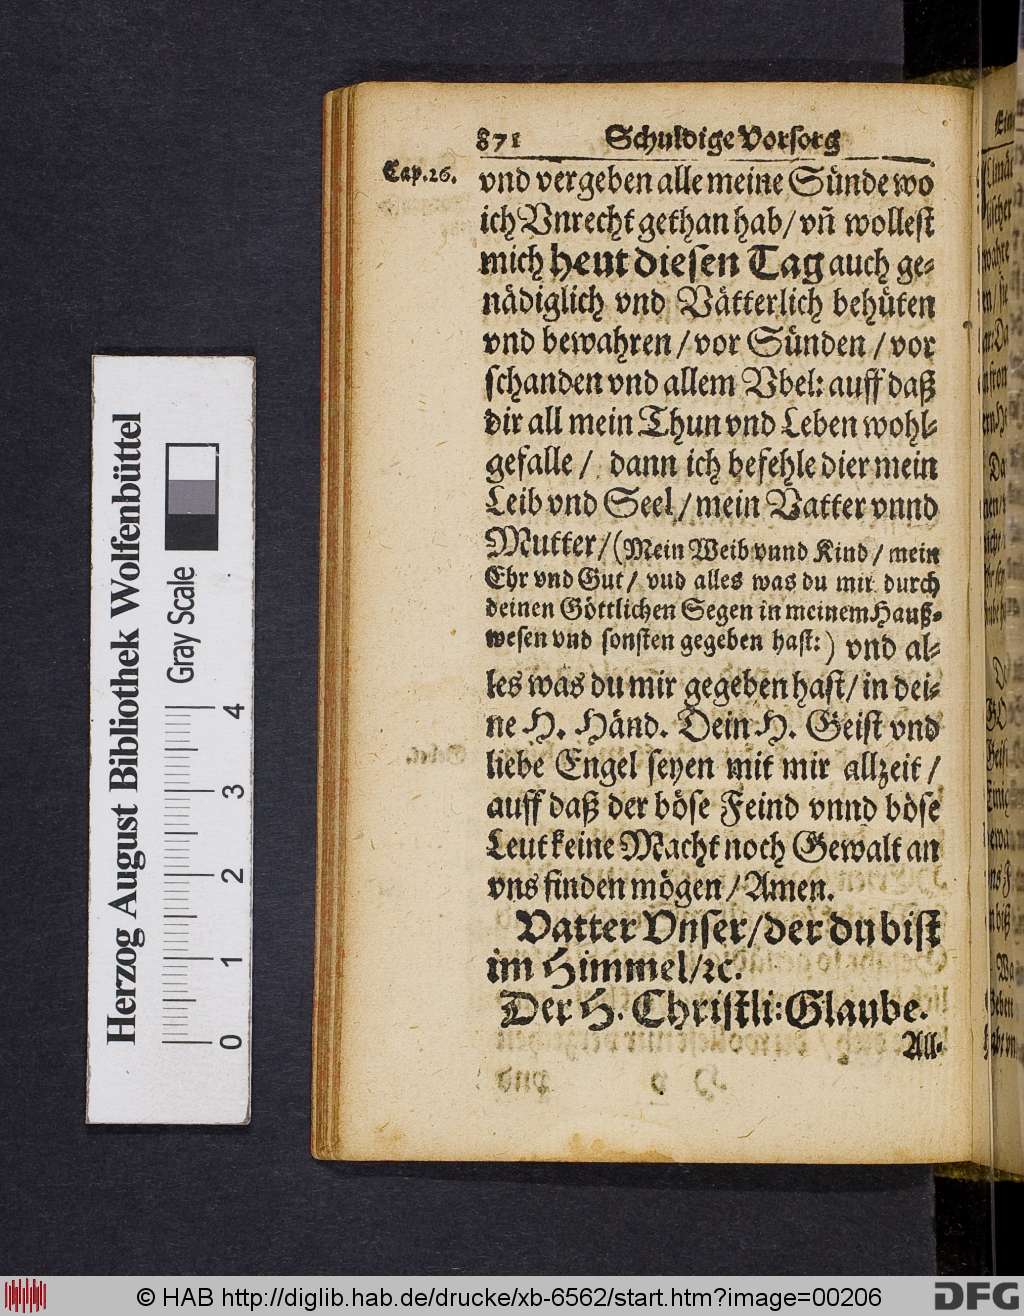 871 Schuldige Vorsorg
Cap.26.
vnd vergeben alle meine Sünde wo
ich Vnrecht gethan hab/ vñ wollest
mich heut diesen Tag auch ge-
nädiglich vnd Vätterlich behüten
vnd bewahren / vor Sünden / vor
schanden vnd allem Vbel: auff daß
dir all mein Thun vnd Leben wohl-
gefalle / dann ich befehle dier mein
Leib vnd Seel / mein Vatter vnnd
Mutter/ (Mein Weib vund Kind / mein
Ehr vnd Gut / vud alles was du mir durch
deinen Göttlichen Segen in meinem Hauß-
wesen vnd sonsten gegeben hast:) vnd al-
les was du mir gegeben hast/ in dei-
ne H. Händ. Dein H. Geist vnd
liebe Engel seyen mit mir allzeit /
auff daß der böse Feind vnnd böse
Leut keine Macht noch Gewalt an
vns finden mögen / Amen.
Vatter Vnser/der du bist
im Himmel/ꝛc.
Der H. Christli: Glaube.
All-
Herzog August Bibliothek Wolfenbüttel
Gray Scale
0 1 2 3 4
© HAB http://diglib.hab.de/drucke/xb-6562/start.htm?image=00206
DFG